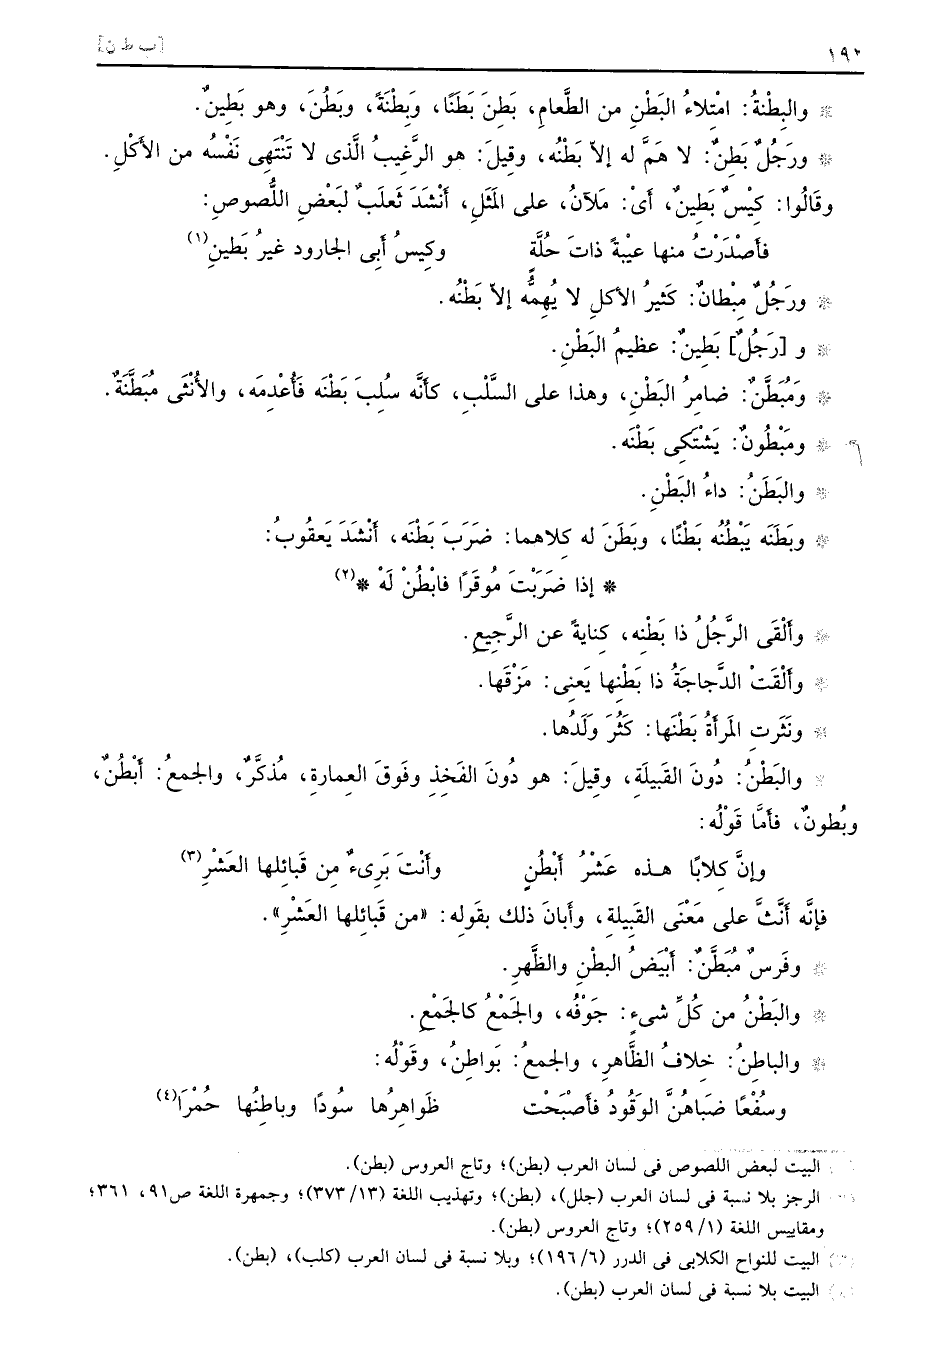 ١٩٢ [ب ط ن]
* والبِطْنةُ: امْتِلاءُ البَطْنِ من الطَّعامِ، بَطِنَ بَطَنًا، وَبِطْنَةً، وبَطُنَ، وهو بَطِينٌ.
* ورَجُلٌ بَطِنٌ: لا هَمَّ له إلاّ بَطْنُه، وقيلَ: هو الرَّغِيبُ الَّذى لا تَنْتَهِى نَفْسُه من الأكْلِ.
وقَالُوا: كِيْسٌ بَطِينٌ، أىْ: مَلآنُ، على المَثَلِ، أنْشَدَ ثَعلَبٌ لبَعْضِ اللُّصوصِ:
فأصْدَرْتُ منها عيْبةً ذاتَ حلَّةٍ وكِيسُ أبى الجارود غيرُ بَطينِ(١)
* ورَجُلٌ مِبْطانٌ: كَثيرُ الأكلِ لا يُهِمُّه إلاّ بَطْنُه.
* و [رَجُلٌ] بَطينٌ: عظيمُ البَطْنِ.
* وَمُبَطَّنٌ: ضامِرُ البَطْنِ، وهذا على السَّلْبِ، كأنَّه سُلِبَ بَطْنَه فَأُعْدِمَه، والأُنْثَى مُبَطَّنَةٌ.
* ومَبْطُونٌ: يَشْتَكِى بَطْنَه.
* والبَطَنُ: داءُ البَطْنِ.
* وبَطَنَه يَبْطُنُه بَطْنًا، وبَطَنَ له كِلاهما: ضَرَبَ بَطْنَه، أنْشَدَ يَعقُوبُ:
* إذا ضَرَبْتَ مُوقَرًا فابْطُنْ لَهْ *(٢)
* وألْقَى الرَّجُلُ ذا بَطْنِه، كنايةً عن الرَّجيعِ.
* وألْقَتْ الدَّجاجَةُ ذا بَطْنِها يَعنِى: مَزْقَها.
* ونَثَرت المَرأةُ بَطْنَها: كَثُرَ وَلَدُها.
* والبَطْنُ: دُونَ القَبيلَةِ، وقيلَ: هو دُونَ الفَخِذِ وفَوقَ العِمارةِ، مُذكَّرٌ، والجمعُ: أبْطُنٌ،
وبُطونٌ، فأمَّا قَوْلُه:
وإنَّ كِلابًا هـذه عَشْرُ أبْطُنٍ وأنْتَ بَرِىءٌ مِن قَبائلها العَشْرِ(٣)
فإنَّه أنَّثَ على مَعْنَى القَبيلةِ، وأبانَ ذلك بقَولِه: «من قَبائلِها العَشْرِ».
* وفَرسٌ مُبَطَّنٌ: أبْيَضُ البطْنِ والظَّهرِ.
* والبَطْنُ من كُلِّ شىءٍ: جَوْفُه، والجَمْعُ كالجَمْعِ.
* والباطِنُ: خلافُ الظَّاهرِ، والجمعُ: بَواطِنُ، وقَوْلُه:
وسُفْعًا ضَباهُنَّ الوَقُودُ فأصْبَحَت ظَواهِرُها سُودًا وباطِنُها حُمْرَا(٤)
البيت لبعض اللصوص فى لسان العرب (بطن)؛ وتاج العروس (بطن).
الرجز بلا نسبة فى لسان العرب (جلل)، (بطن)؛ وتهذيب اللغة (١٣/ ٣٧٣)؛ وجمهرة اللغة ص٩١، ٣٦١؛
ومقاييس اللغة (١/ ٢٥٩)؛ وتاج العروس (بطن).
(٣) البيت للنواح الكلابى فى الدرر (٦/ ١٩٦)؛ وبلا نسبة فى لسان العرب (كلب)، (بطن).
(٤) البيت بلا نسبة فى لسان العرب (بطن).